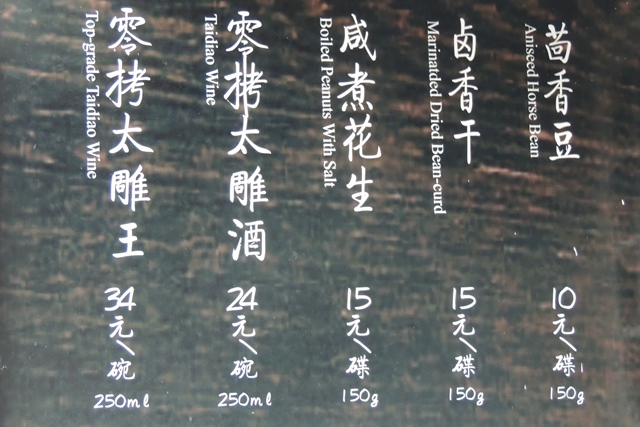 茴香豆
Aniseed Horse Bean
10
元/碟
150g
卤香干
Marinatded Dried Bean-curd
15
元/碟
150g
咸煮花生
Boiled Peanuts With Salt
15
元/碟
150g
零拷太雕酒
Taidiao Wine
24
元/碗
250ml
零拷太雕王
Top-grade Taidiao Wine
34
元/碗
250ml